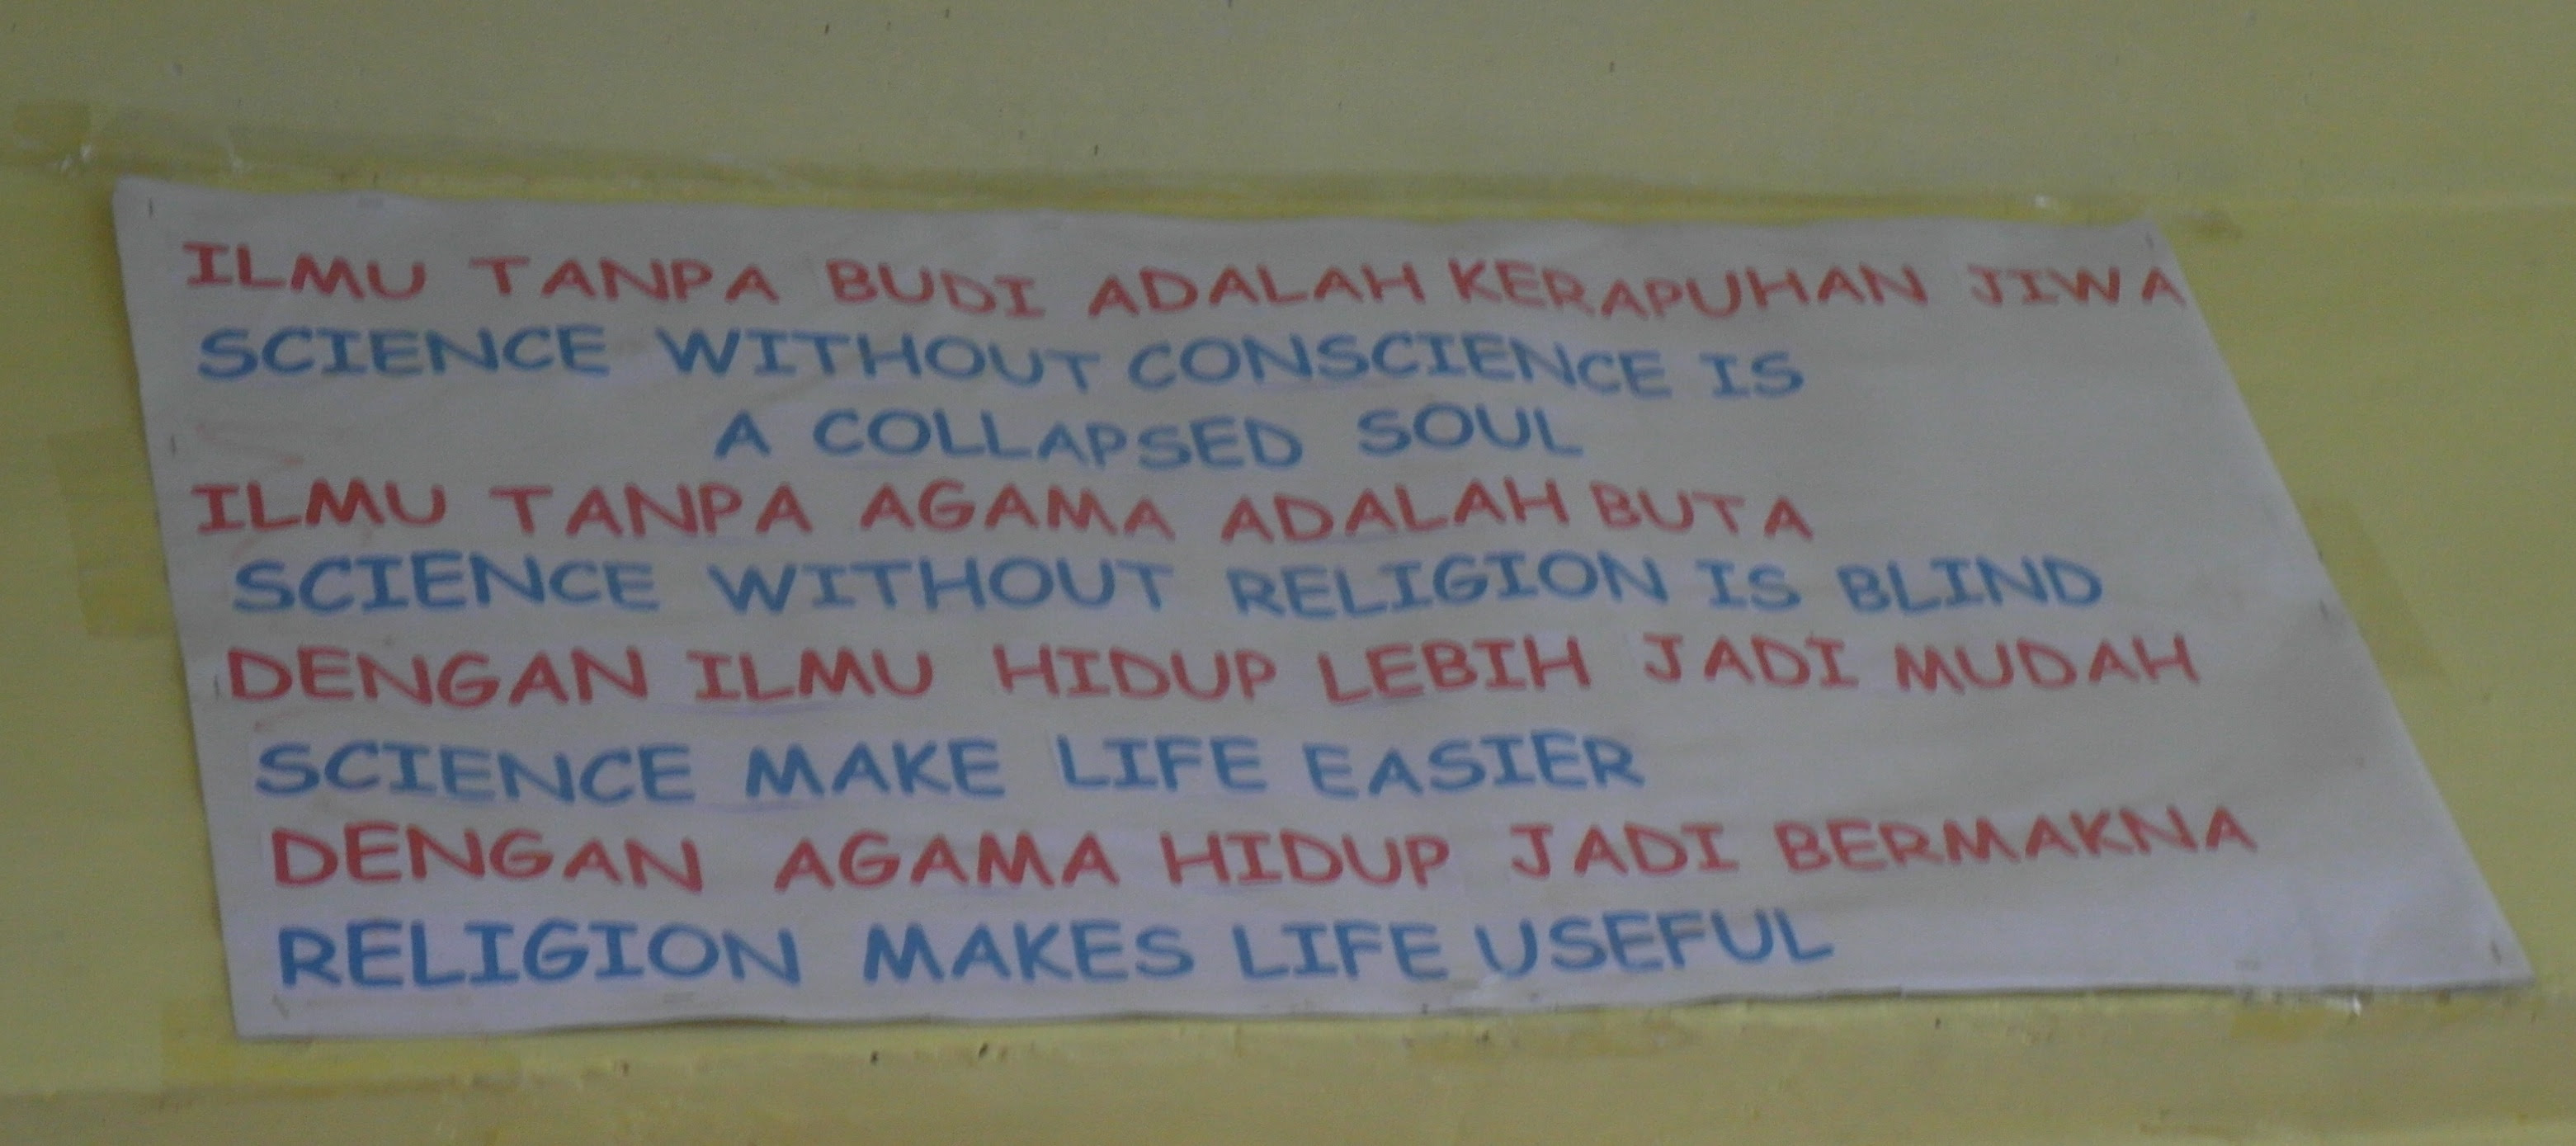 ILMU TANPA BUDI ADALAH KERAPUHAN JIWA
SCIENCE WITHOUT CONSCIENCE IS
A COLLAPSED SOUL
ILMU TANPA AGAMA ADALAH BUTA
SCIENCE WITHOUT RELIGION IS BLIND
DENGAN ILMU HIDUP LEBIH JADI MUDAH
SCIENCE MAKE LIFE EASIER
DENGAN AGAMA HIDUP JADI BERMAKNA
RELIGION MAKES LIFE USEFUL